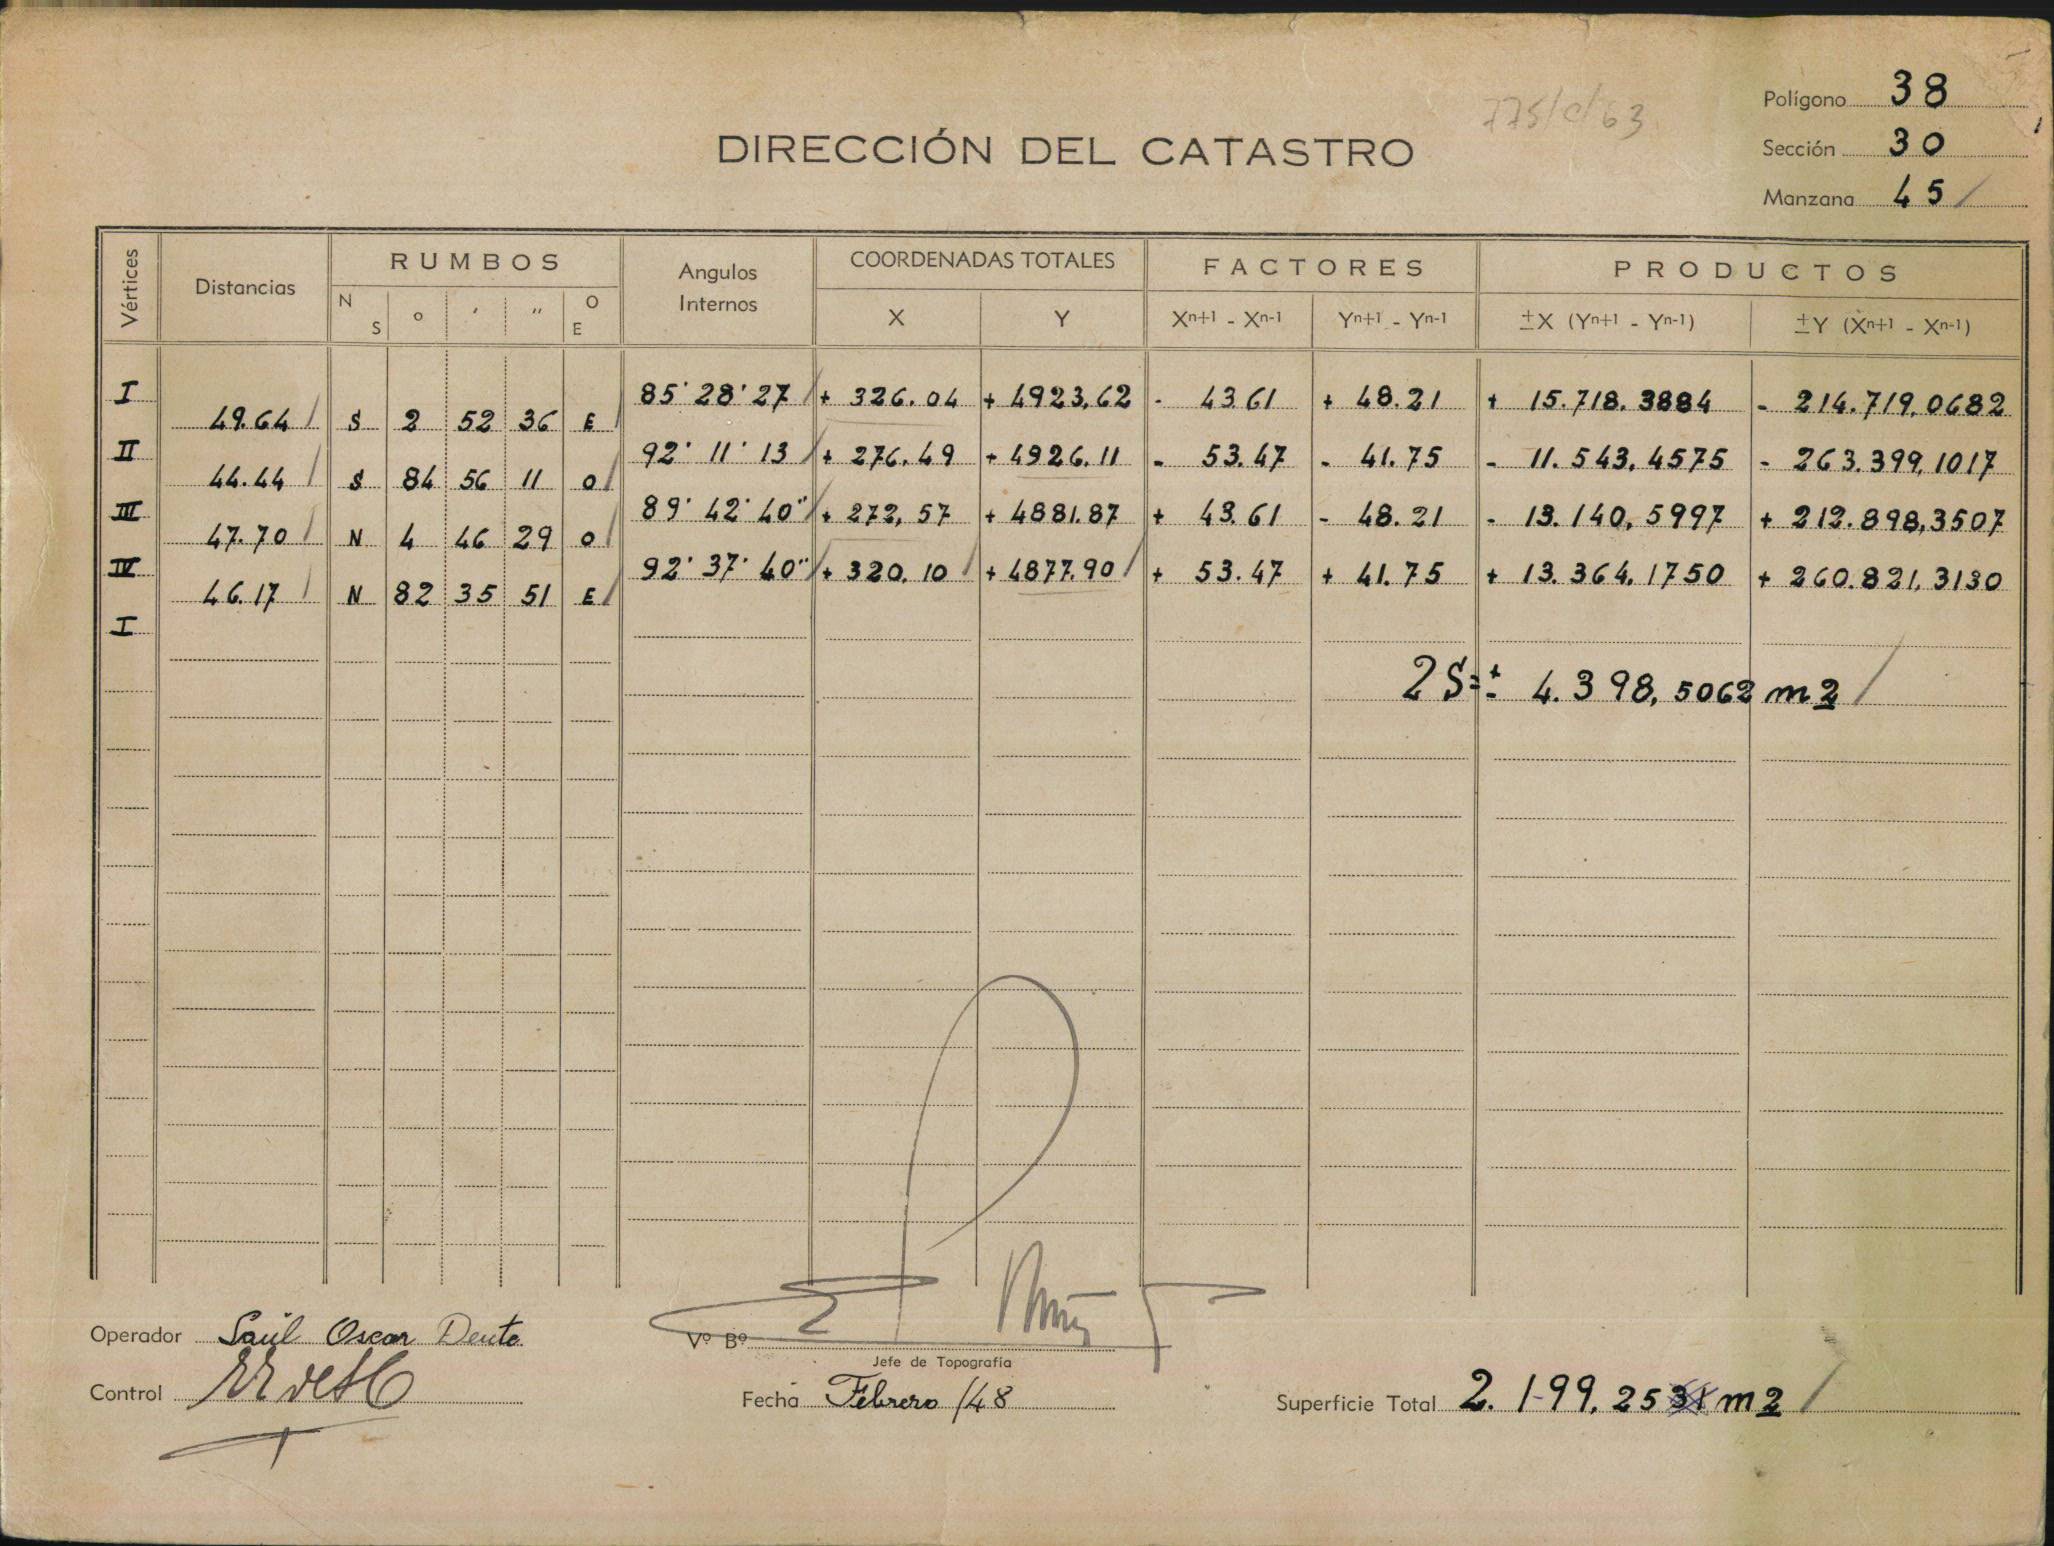 775/c/63
Polígono 38
DIRECCIÓN DEL CATASTRO
Sección 30
Manzana 45
Vértices Distancias RUMBOS Angulos Internos COORDENADAS TOTALES FACTORES PRODUCTOS
N S ° ' " O E X Y Xn+1 - Xn-1 Yn+1 - Yn-1 ±X (Yn+1 - Yn-1) ±Y (Xn+1 - Xn-1)
I 85° 28' 27 + 326.04 + 4923,62 - 43.61 + 48.21 + 15.718.3884 - 214.719,0682
49.64 S 2 52 36 E
II 92° 11' 13 + 276.49 + 4926.11 - 53.47 - 41.75 - 11.543,4575 - 263.399,1017
44.44 S 84 56 11 O
III 89° 42' 40" + 272,57 + 4881.87 + 43.61 - 48.21 - 13.140,5997 + 212.898,3507
47.70 N 4 46 29 O
IV 92° 37' 40" + 320.10 + 4877.90 + 53.47 + 41.75 + 13.364,1750 + 260.821,3130
46.17 N 82 35 51 E
I
2S=± 4.398,5062 m2
Operador Saúl Oscar Dente
Vº Bº
Jefe de Topografía
Control
Fecha Febrero /48
Superficie Total 2.199,2531 m2